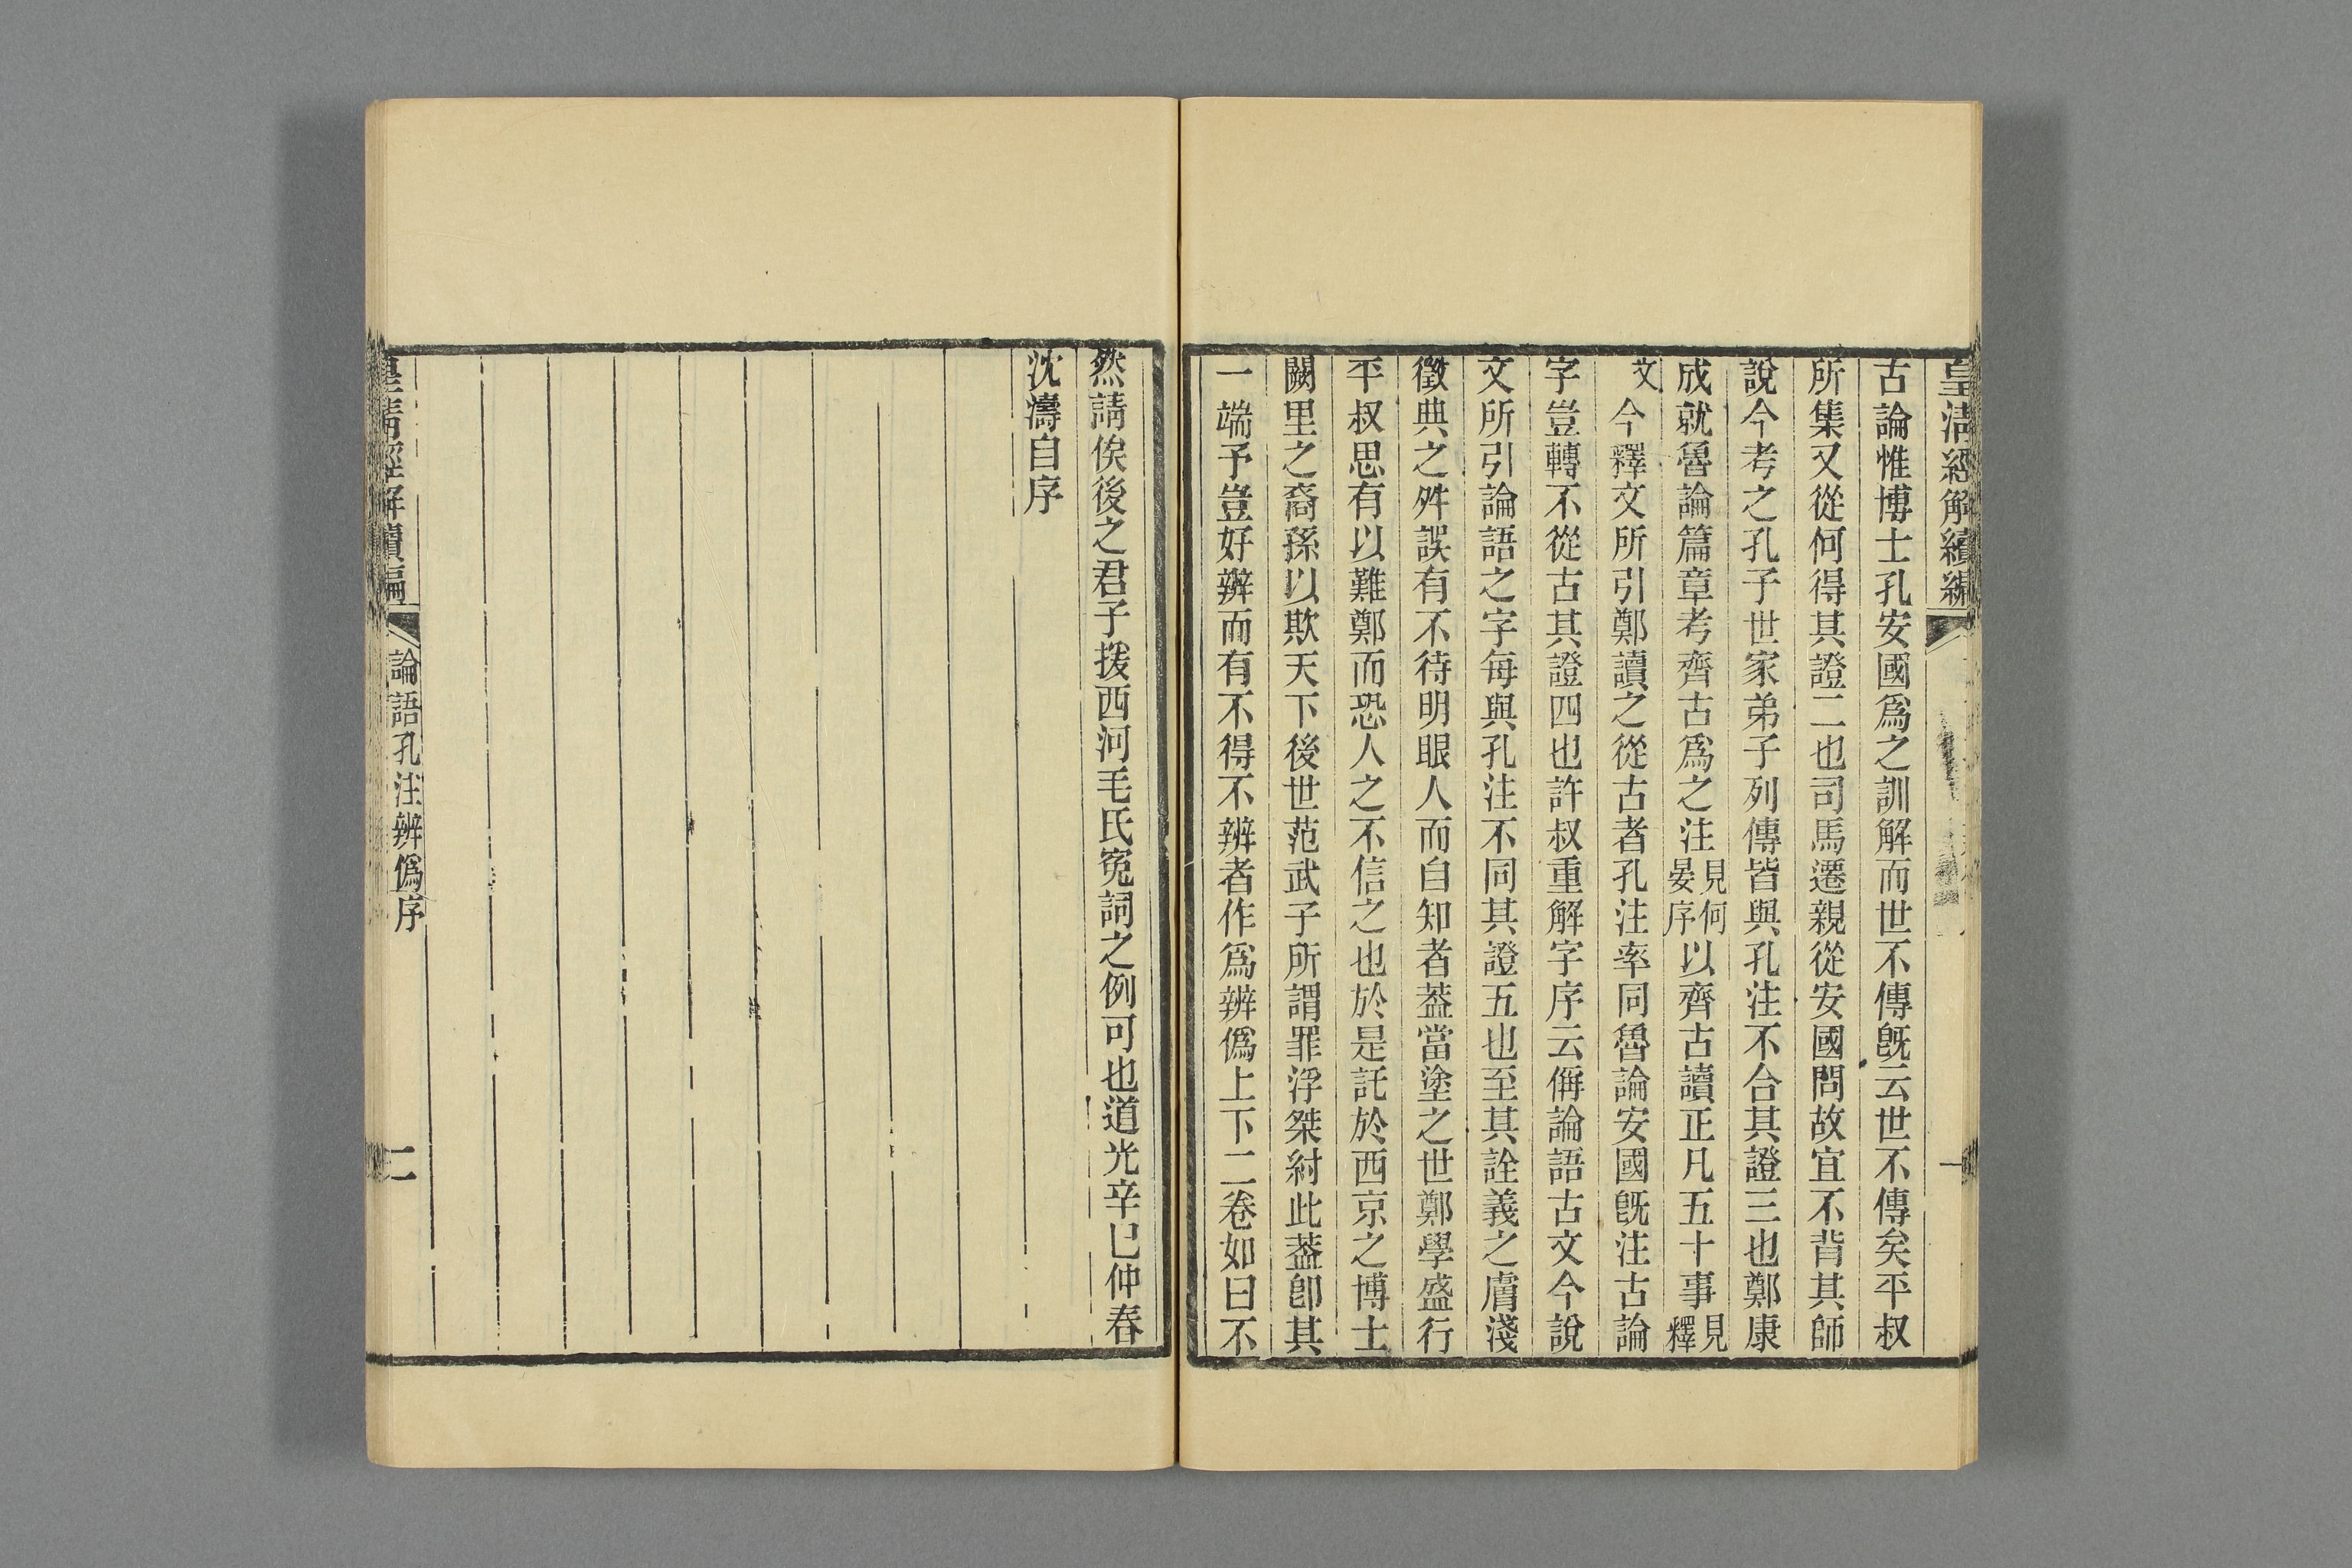 皇清經解續編
古論惟博士孔安國爲之訓解而世不傳旣云世不傳矣平叔
所集又從何得其證二也司馬遷親從安國問故宜不背其師
說今考之孔子世家弟子列傳皆與孔注不合其證三也鄭康
成就魯論篇章考齊古爲之注見何晏序以齊古讀正凡五十事見釋
文今釋文所引鄭讀之從古者孔注率同魯論安國旣注古論
字豈轉不從古其證四也許叔重解字序云偁論語古文今說
文所引論語之字每與孔注不同其證五也至其詮義之膚淺
徵典之舛誤有不待明眼人而自知者葢當塗之世鄭學盛行
平叔思有以難鄭而恐人之不信之也於是託於西京之博士
闕里之裔孫以欺天下後世范武子所謂罪浮桀紂此葢卽其
一端予豈好辨而有不得不辨者作爲辨僞上下二卷如曰不
然請俟後之君子援西河毛氏冤詞之例可也道光辛巳仲春
沈濤自序
皇清經解續編
論語孔注辨僞序
二